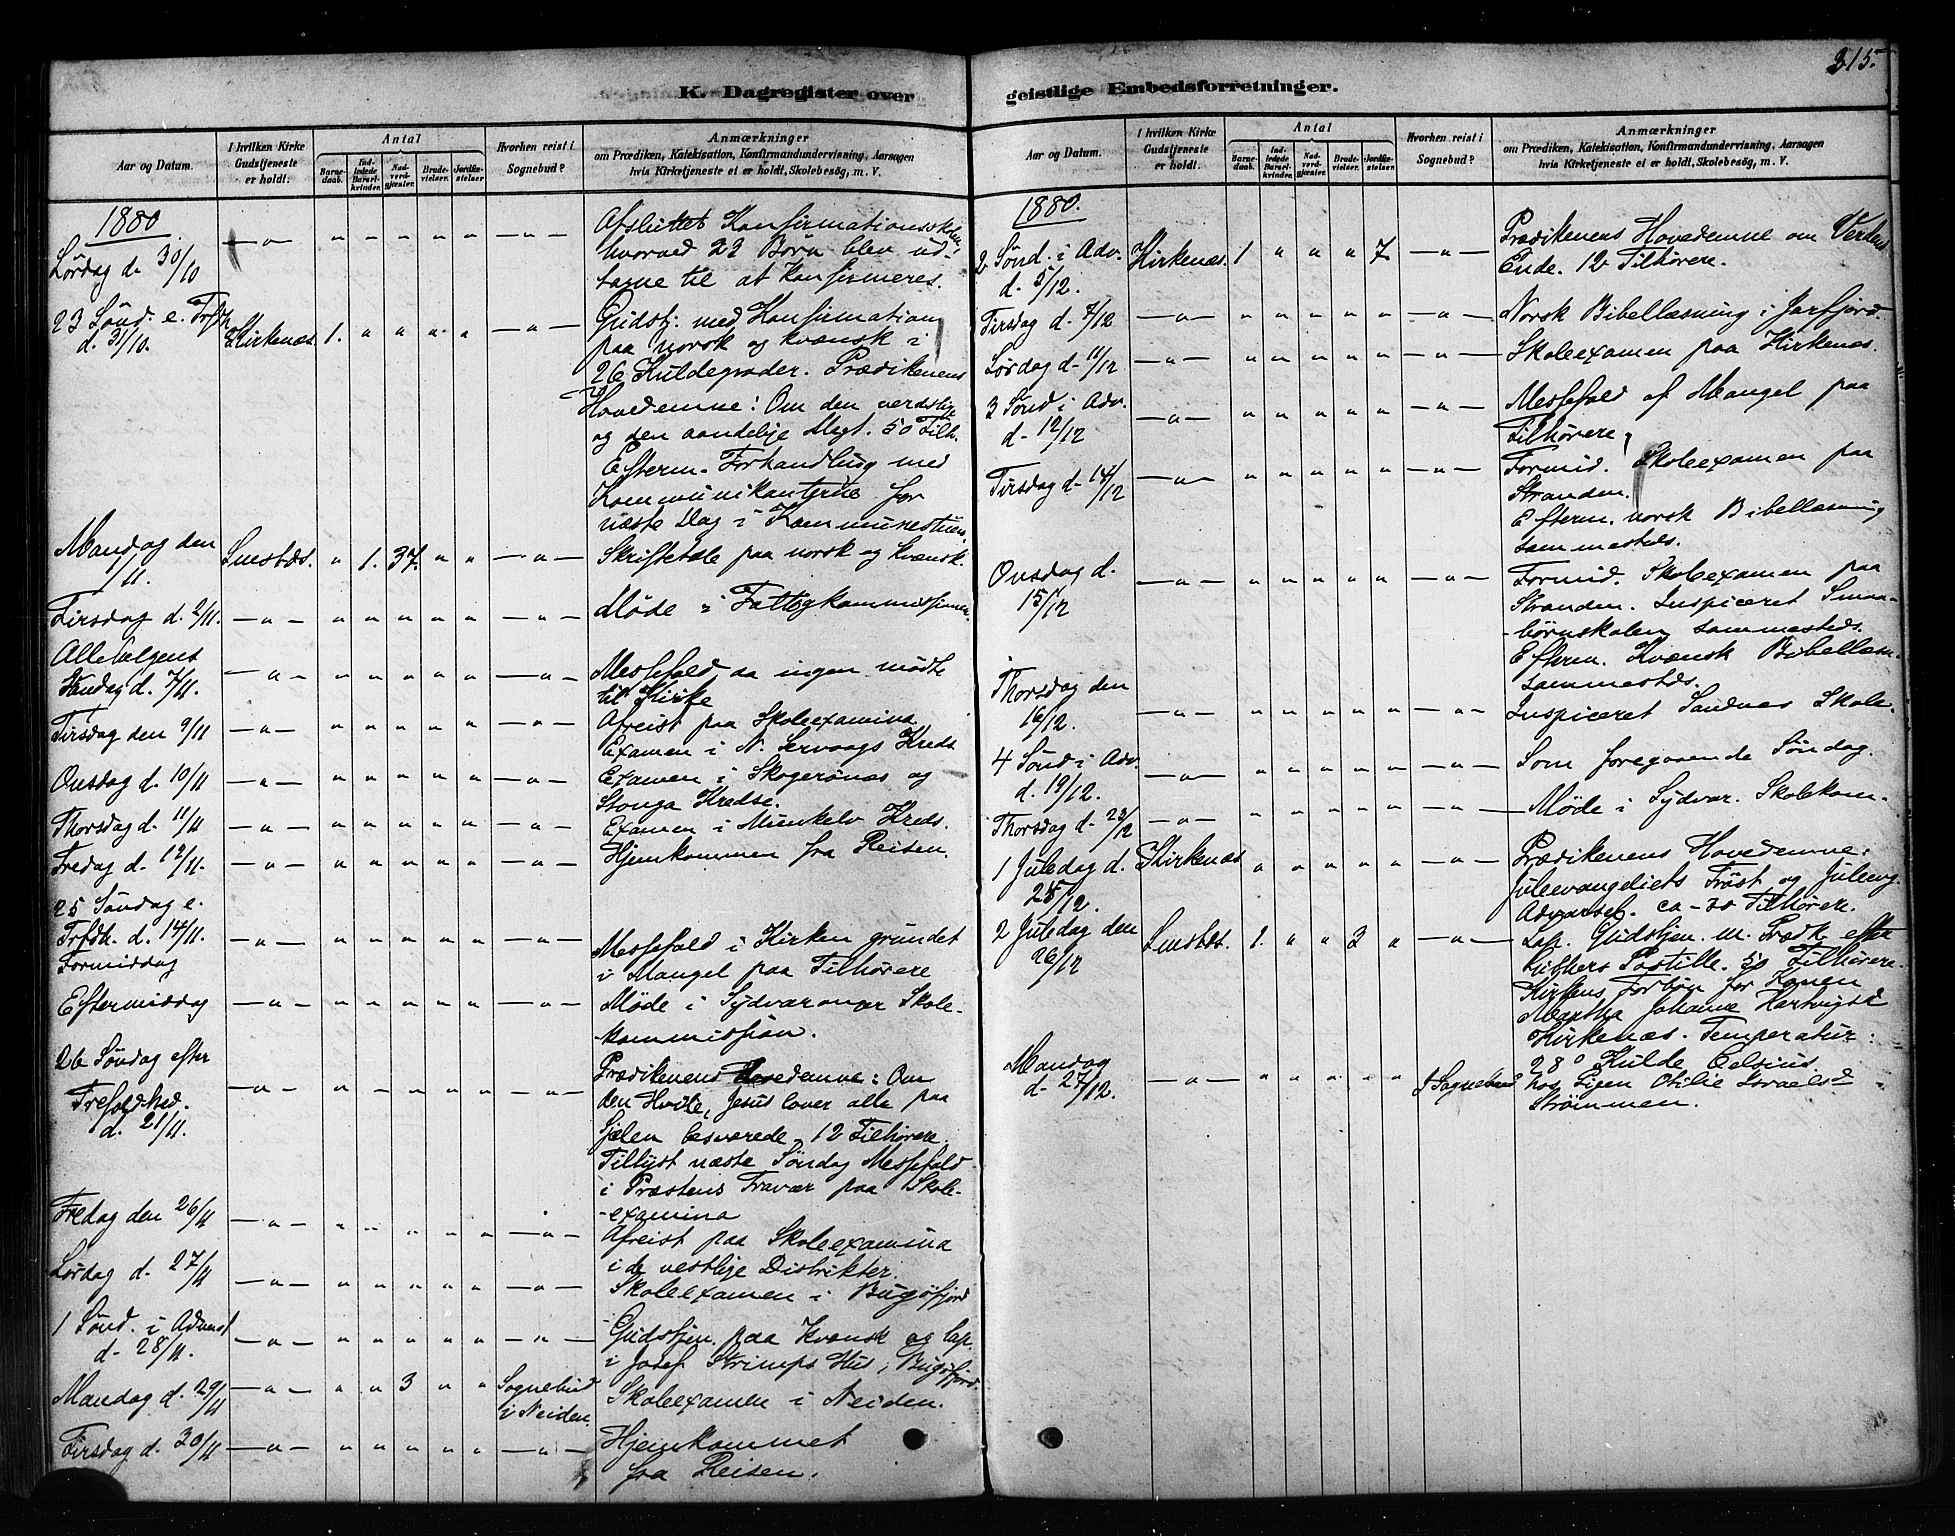 315.
K. Dagregister over
geistlige Embedsforretninger.
Aar og Datum.
I hvilken Kirke Gudstjeneste er holdt.
Antal
Barnedaab.
Indledede Barselkvinder.
Nadverdgjæster.
Brudevielser.
Jordfæstelser
Hvorhen reist i Sognebud?
Anmærkninger
om Prædiken, Katekisation, Konfirmandundervisning, Aarsagen
hvis Kirketjeneste ei er holdt, Skolebesög, m. V.
1880
Lørdag d. 30/10
Afsluttet Konfirmationsskolen,
hvorved 22 Børn blev ud-
tagne til at Konfirmeres.
23 Sönd. e. Trfdh.
d. 31/10.
Kirkenæs. 1.
Gudstj. med Konfirmation
paa norsk og kvænsk i
26 Kuldegrader. Prædikenens
Hovedemne: Om den verdslige
og den aandelige Magt. 50 Tilh.
Efterm. Forhandling med
Kommunikanterne for
næste Dag i Kommunestuen.
Mandag den
1/11.
Smstds. " 1. 37. " "
Skriftetale paa norsk og kvænsk.
Tirsdag d. 2/11.
Møde i Fattigkommissionen.
Allehelgens
Söndag d. 7/11.
Messefald, da ingen mødte
til Kirke
Tirsdag den 9/11
Afreist paa Skoleexamina
Examen i N. Servaags Kreds
Onsdag d. 10/11
Examen i Skogerönæs og
Stonga Kredse.
Thorsdag d. 11/11
Examen i Munkelv Kreds.
Fredag d. 12/11.
Hjemkommen fra Reisen.
25 Söndag e.
Trfdh. d. 14/11.
Formiddag
Messefald i Kirken grundet
i Mangel paa Tilhørere
Eftermiddag
Møde i Sydvaranger Skole-
kommission.
26 Söndag efter
Trefoldhed.
d. 21/11.
Prædikenens Hovedemne: Om
den Hvile, Jesus lover alle paa
Sjælen besværede. 12 Tilhørere.
Tillyst næste Søndag Messefald
i Præstens Fravær paa Skole-
-examina
Fredag den 26/11
Afreist paa Skoleexamina
i de vestlige Distrikter.
Lørdag d. 27/11
Skoleexamen i Bugöfjord
1 Sönd. i Advent
d. 28/11.
Gudstjen. paa Kvænsk og lap.
i Josef Strimps Hus i Bugöfjord.
Mandag d. 29/11
3
Sognebud
i Neiden.
Skoleexamen i Neiden.
Tirsdag d. 30/11
Hjemkommet
fra Reisen.
Aar og Datum.
I hvilken Kirke Gudstjeneste er holdt.
Antal
Barnedaab.
Indledede Barselkvinder.
Nadverdgjæster.
Brudevielser.
Jordfæstelser.
Hvorhen reist i Sognebud?
Anmærkninger
om Prædiken, Katekisation, Konfirmandundervisning, Aarsagen
hvis Kirketjeneste ei er holdt, Skolebesög, m. V.
1880.
2 Sönd. i Adv.
d. 5/12.
Kirkenæs. 1 " " " 7.
Prædikenens Hovedemne om Verdens
Ende. 12 Tilhørere.
Tirsdag d. 7/12
Norsk Bibellæsning i Jarfjord.
Lørdag d. 11/12
Skoleexamen paa Kirkenæs.
3 Sönd i Adv.
d. 12/12
Messefald af Mangel paa
Tilhørere
Tirsdag d. 14/12
Formid. Skoleexamen paa
Stranden.
Efterm. norsk Bibellæsning
sammesteds.
Onsdag d.
15/12
Formid. Skoleexamen paa
Stranden. Inspiceret Smaa-
-børnskolen sammesteds.
Efterm. Kvænsk Bibellæsn.
sammesteds.
Thorsdag den
16/12.
Inspiceret Sandnæs Skole.
4 Sönd i Adv.
d. 19/12.
Som foregaaende Søndag.
Thorsdag d. 23/12
Møde i Sydvar. Skolekom.
1 Juledag d.
25/12.
Kirkenæs
Prædikenens Hovedemne:
Juleevangeliets Trøst og
Advarsel. ca 30 Tilhørere.
2 Juledag den
26/12
Smstds. 1. " " 3 "
Lap. Gudstjen. m. Prædk. efter
Luthers Postille. 50 Tilhørere.
Kirkens Forbøn for Konen
Martha Johanne Hartvigsd
Kirkenæs. Temperatur:
28° Kulde Celsius.
Mandag
d. 27/12.
I Sognebud
hos Pigen Otilie Israelsd
Strömmen.